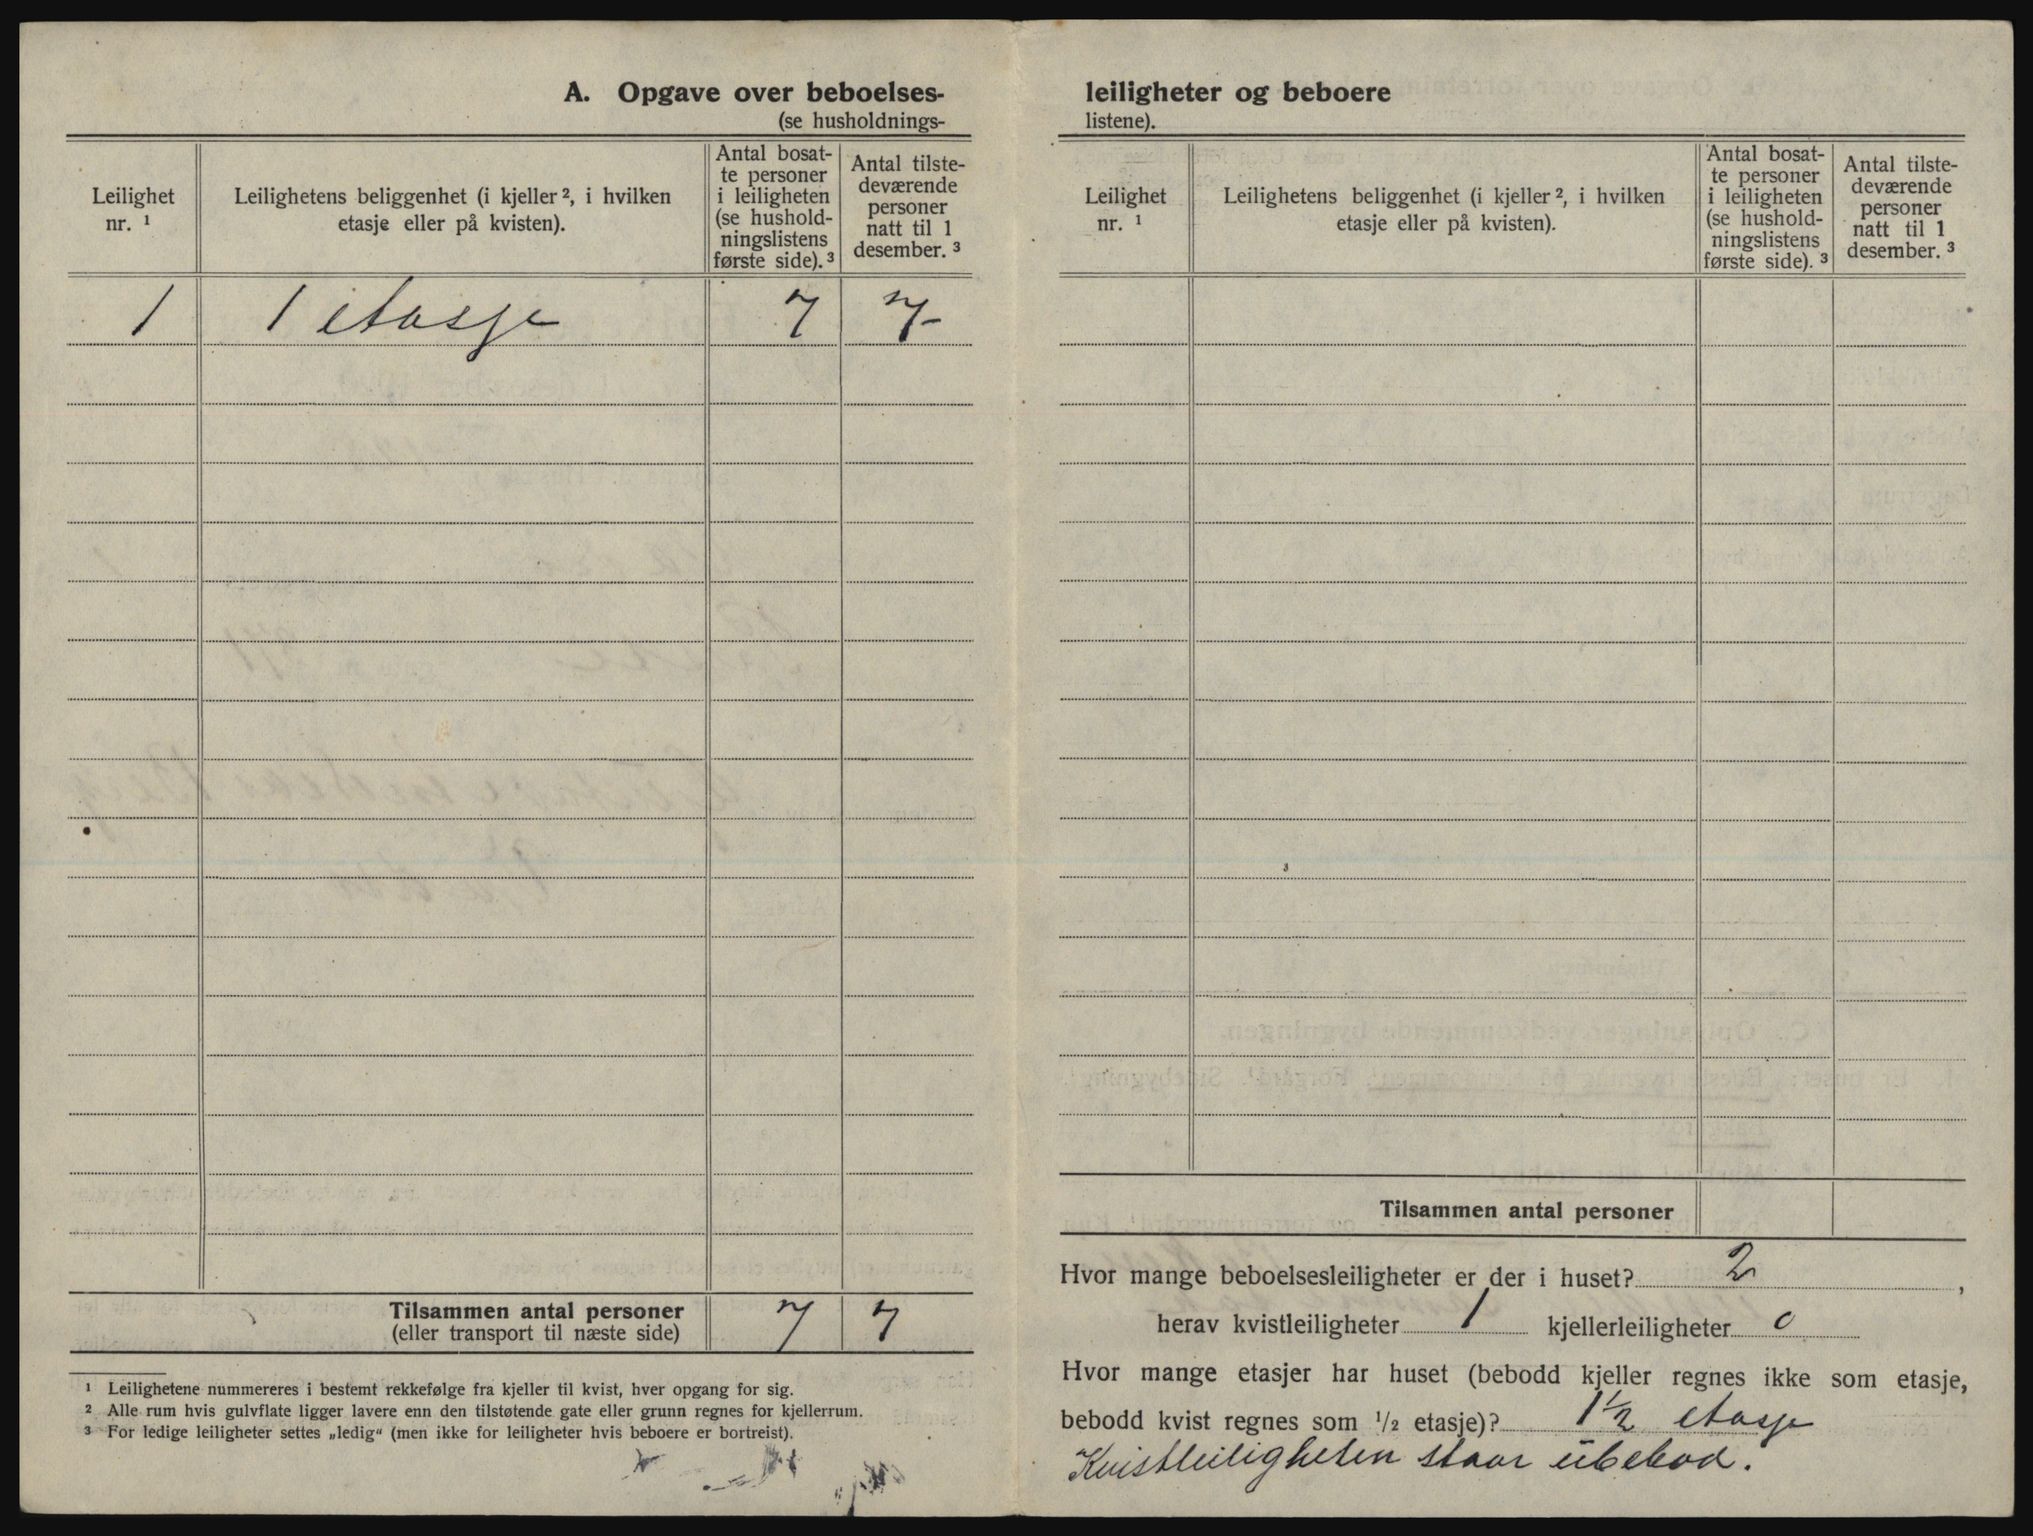 A. Opgave over beboelses-
(se husholdnings-
Leilighet
nr. 1
Leilighetens beliggenhet (i kjeller ², i hvilken
etasje eller på kvisten).
Antal bosat-
te personer
i leiligheten
(se hushold-
ningslistens
første side). ³
Antal tilste-
deværende
personer
natt til 1
desember. ³
1 1 etasje 7 7-
Tilsammen antal personer 7 7
(eller transport til næste side)
¹ Leilighetene nummereres i bestemt rekkefølge fra kjeller til kvist, hver opgang for sig.
² Alle rum hvis gulvflate ligger lavere enn den tilstøtende gate eller grunn regnes for kjellerrum.
³ For ledige leiligheter settes „ledig“ (men ikke for leiligheter hvis beboere er bortreist).
leiligheter og beboere
listene).
Leilighet
nr. ¹
Leilighetens beliggenhet (i kjeller ², i hvilken
etasje eller på kvisten).
Antal bosat-
te personer
i leiligheten
(se hushold-
ningslistens
første side). ³
Antal tilste-
deværende
personer
natt til 1
desember. ³
Tilsammen antal personer
Hvor mange beboelsesleiligheter er der i huset? 2 ,
herav kvistleiligheter 1 kjellerleiligheter 0
Hvor mange etasjer har huset (bebodd kjeller regnes ikke som etasje,
bebodd kvist regnes som ½ etasje)? 1½ etasje
Kvistleiligheten staar übebod.